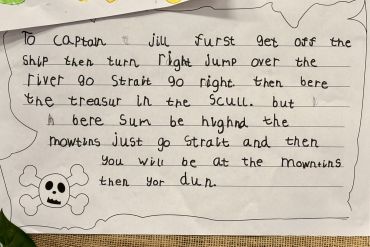 To Captain Jill furst get off the
ship then turn right jump over the
river go strait go right. then bere
the treasur in the scull. but
bere sum be highnd the
mowtins just go strait and then
you will be at the mowntins
then yor dun.